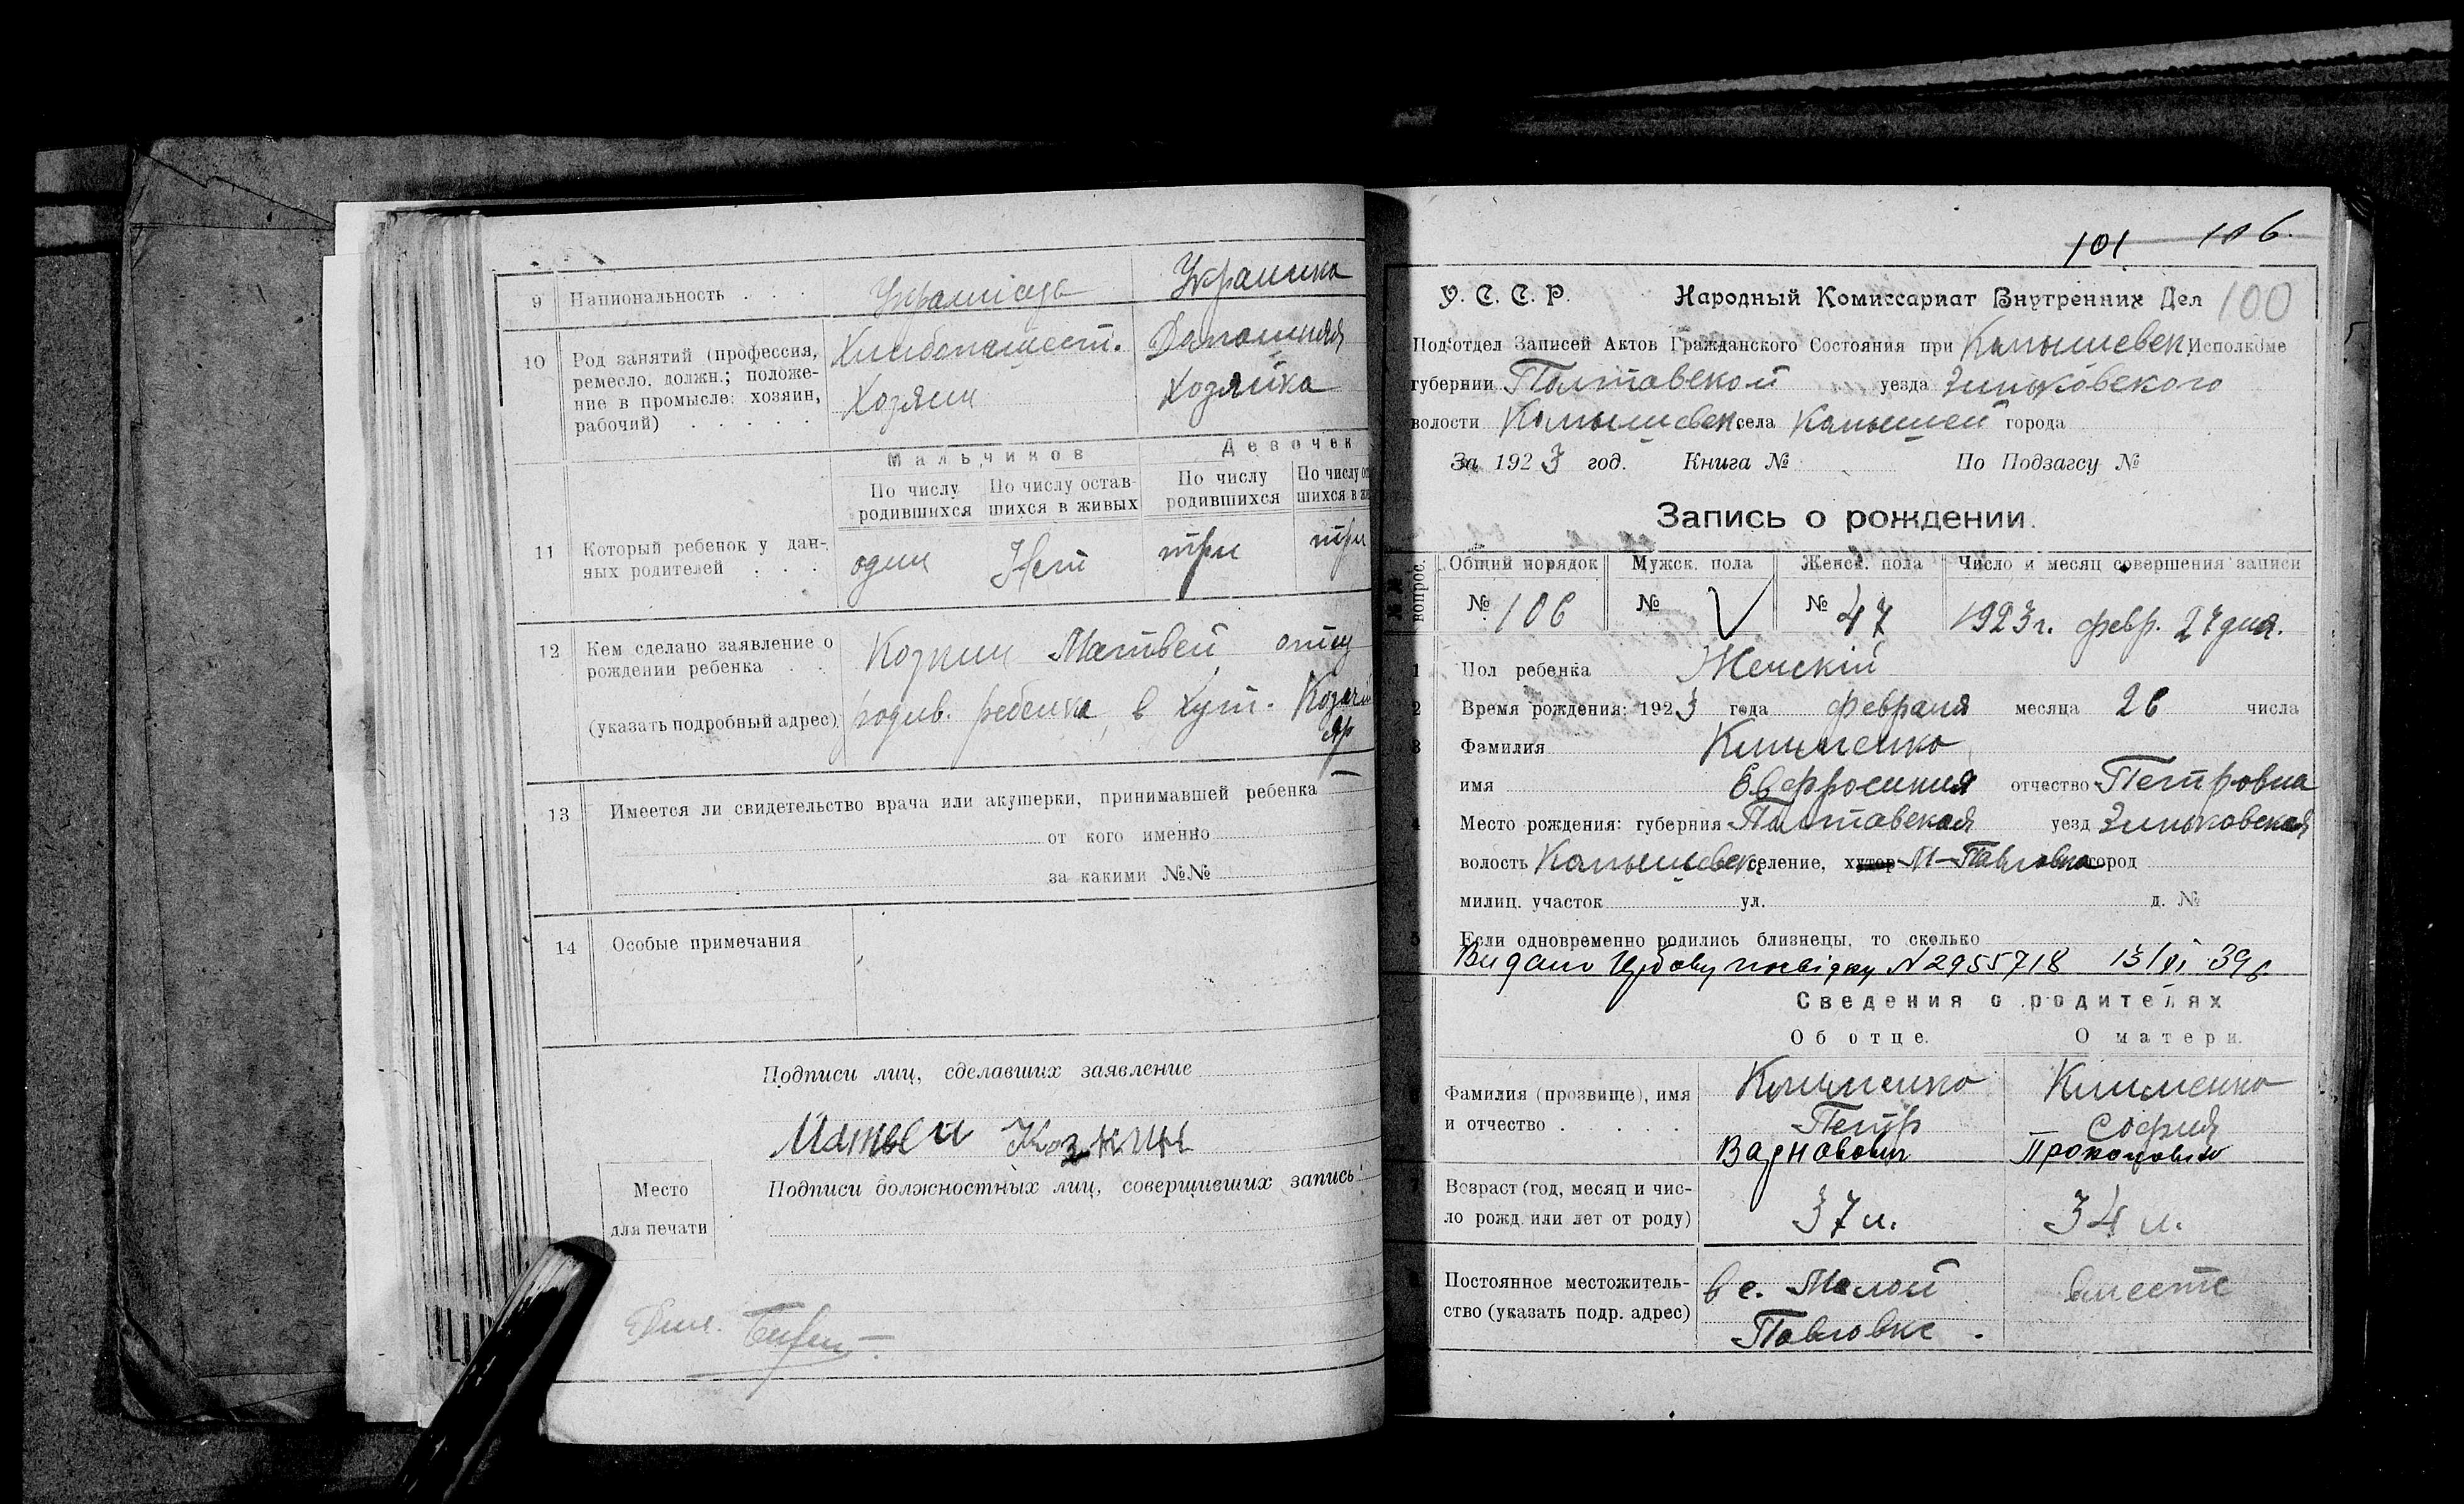 9 Национальность . . . Украинец Украинка
10 Род занятий (профессия, Хлебопашест. Домашняя
ремесло, должн.; положе-
ние в промысле: хозяин, Хозяин Хозяйка
рабочий) . . . . .
Мальчиков Девочек
По числу По числу остав- По числу По числу ос
родившихся шихся в живых родившихся шихся в жи
11 Который ребенок у дан-
ных родителей . . . один Нет три три
12 Кем сделано заявление о
рождении ребенка . . Козкин Матвей отец
(указать подробный адрес) родив. ребенка, в хут. Козачий
Яр
13 Имеется ли свидетельство врача или акушерки, принимавшей ребенка —
от кого именно
за какими №№
14 Особые примечания
Подписи лиц, сделавших заявление
Матвей Козкин
Место
для печати
Подписи должностных лиц, совершивших запись:
101 106.
У. С. С. Р. Народный Комиссариат Внутренних Дел 100
Под‘отдел Записей Актов Гражданского Состояния при Камышевск. Исполкоме
губернии Полтавской уезда Зиньковского
волости Камышевск. села Камышей города
За 1923 год. Книга № По Подзагсу №
Запись о рождении.
№№ вопрос. Общий порядок Мужск. пола Женск. пола Число и месяц совершения записи
№ 106 № V № 47 1923 г. февр. 27 дня.
1 Пол ребенка Женскій
2 Время рождения: 1923 года февраля месяца 26 числа
3 Фамилия Клименко
имя Евфросиния отчество Петровна
4 Место рождения: губерния Полтавская уезд Зиньковская
волость Камышевск. селение, хутор М-Павловка город
милиц. участок ул. д. №
5 Если одновременно родились близнецы, то сколько
Видано посвідку N 2955718 13/VI 39 р.
Сведения о родителях
Об отце. О матери.
6 Фамилия (прозвище), имя Клименко Клименко
и отчество . . . . . Петр София
Прокоповна
7 Возраст (год, месяц и чис-
ло рожд. или лет от роду) 37 л. 34 л.
8 Постоянное местожитель- в с. Малой вместе
ство (указать подр. адрес)
Павловке.